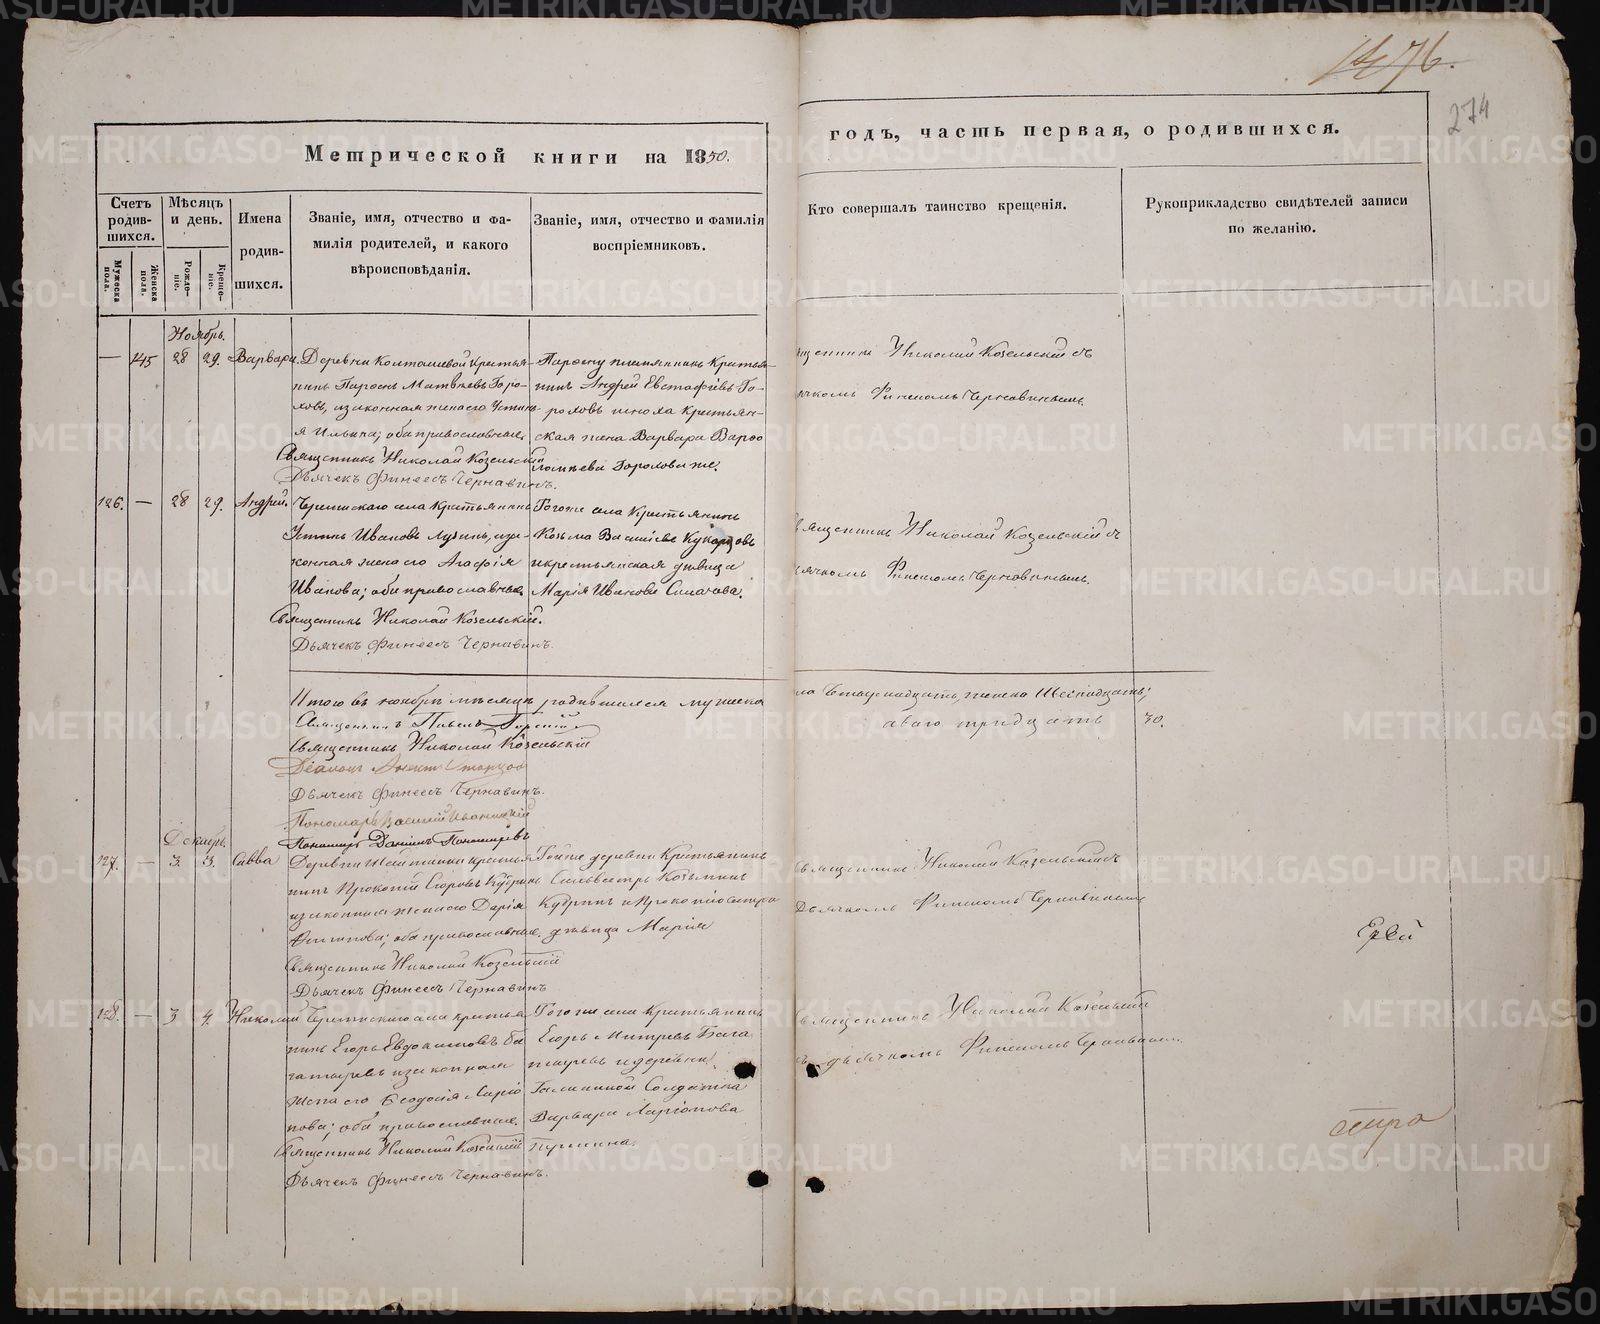 1476.
274
Метрической книги на 1850.
годъ, часть первая, о родившихся.
Счетъ родив-
шихся.
Мужеска пола.
Женска пола.
Мѣсяцъ и день.
Рожде-
ніе.
Креще-
ніе.
Имена
родив-
шихся.
Званіе, имя, отчество и фа-
милія родителей, и какого
вѣроисповѣданія.
Званіе, имя, отчество и фамилія
воспріемниковъ.
Кто совершалъ таинство крещенія.
Рукоприкладство свидѣтелей записи
по желанію.
Ноябрь.
— 145 28 29. Варвара.
Деревни Колташевой крестья-
нинъ Парѳенъ Матвѣевъ Горо-
ховъ, и законная жена его Устинь-
я Ильина; оба православные.
Священникъ Николай Козельскій
Дьячекъ Финеесъ Чернавинъ.
Парѳену племянникъ Крестья-
нинъ Андрей Евстафіевъ Го-
роховъ и сноха Крестьян-
ская жена Варвара
Горохова же.
Священникъ Николай Козельскій съ
дьячкомъ Финеесомъ Чернавинымъ.
126. — 28 29. Андрей.
села Крестьянинъ
Устинъ Ивановъ Лузинъ, и за-
конная жена его Агафія
Иванова; оба православные.
Священникъ Николай Козельскій.
Дьячекъ Финеесъ Чернавинъ.
Того же села Крестьянинъ
Козьма Василіевъ Кукарцовъ
и крестьянская дѣвица
Марія Иванова
Священникъ Николай Козельскій съ
дьячкомъ Финеесомъ Чернавинымъ.
Итого въ ноябрѣ мѣсяцѣ родившихся мужеска
пола четырнадцать, женска Шестнадцать;
обаго тридцать 30.
Священникъ Павелъ
Священникъ Николай Козельскій
Діаконъ
Дьячекъ Финеесъ Чернавинъ.
Пономарь Василій
Пономарь Даніилъ Пономаревъ
Декабрь.
127. — 3. 3. Савва
Деревни крестья
нинъ Прокопій Егоровъ Кузринъ
и законная жена его Дарія
оба православные.
Священникъ Николай Козельскій
Дьячекъ Финеесъ Чернавинъ.
Той же деревни Крестьянинъ
Сильвестръ Козьминъ
Кузринъ и Прокопію сестра
дѣвица Марія
Священникъ Николай Козельскій съ
Дьячкомъ Финеесомъ Чернавинымъ
128. — 3 4. Николай
села крестья
нинъ Егоръ Евдокимовъ Ба
гатыревъ и законная
жена его Ѳеодосія Ларіо
нова; оба православные.
Священникъ Николай Козельскій
Дьячекъ Финеесъ Чернавинъ.
Того же села Крестьянинъ
Егоръ Митревъ Бага
тыревъ и деревни
Солдатка
Варвара Ларіонова
Священникъ Николай Козельскій
съ дьячкомъ Финеесомъ Чернавинымъ.
METRIKI.GASO-URAL.RU